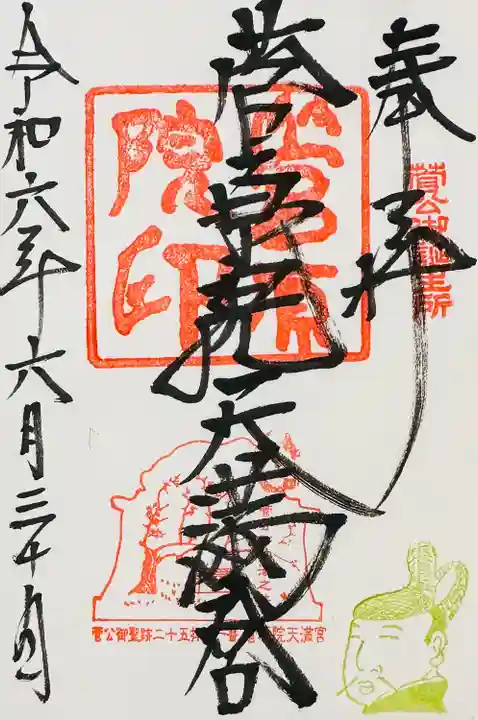 奉拝
菅公御誕生所
菅原院天満宮
菅原院印
菅公御聖跡二十五拝第一番菅原院天満宮
令和六年六月三十日